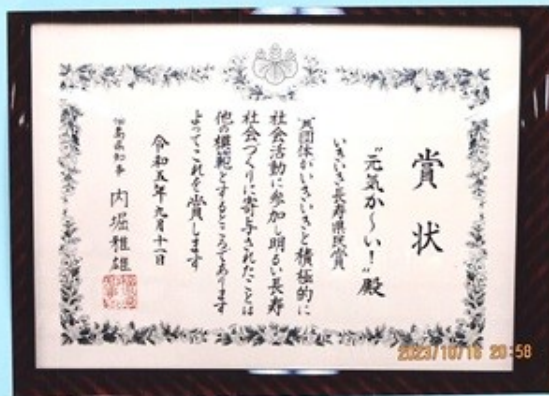 賞状
"元気か〜い!"殿
いきいき長寿県民賞
貴団体がいきいきと積極的に
社会活動に参加し明るい長寿
社会づくりに寄与されたことは
他の模範とするところであります
よってこれを賞します
令和五年九月十一日
福島県知事 内堀雅雄
2023/10/16 20:58